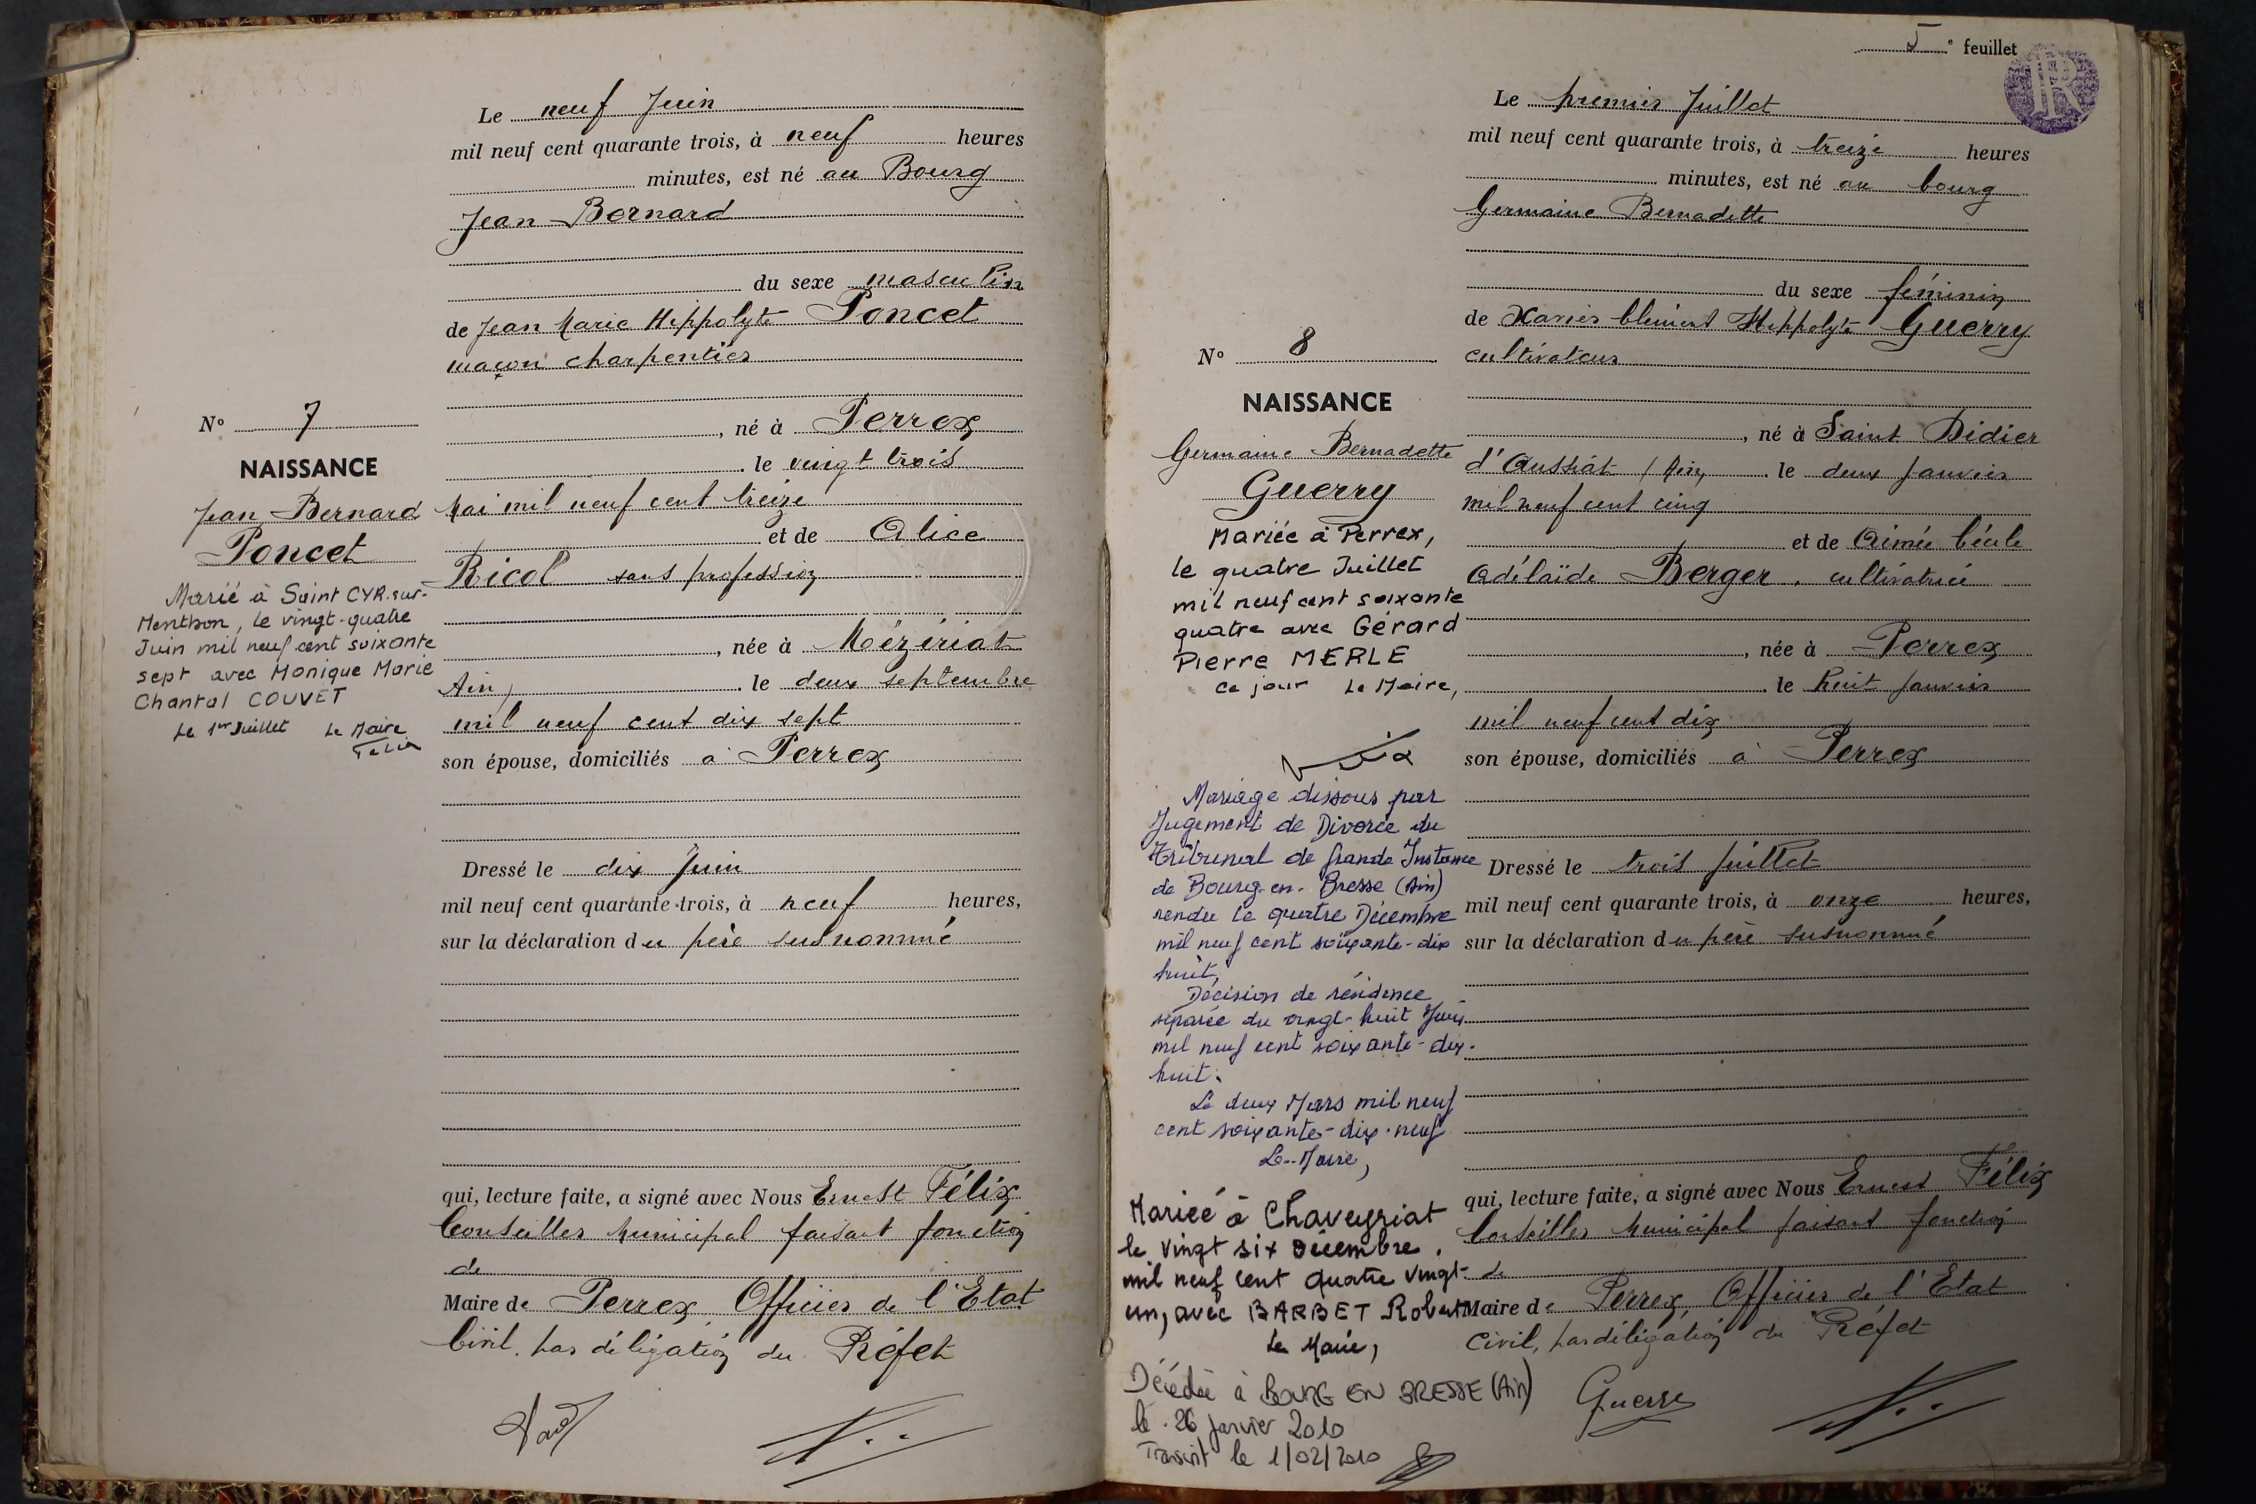 Le neuf Juin
mil neuf cent quarante trois, à neuf heures
minutes, est né au Bourg
Jean Bernard
du sexe masculin
de Jean Marie Hippolyte Poncet
maçon charpentier
, né à Perrex
le vingt trois
Mai mil neuf cent treize
et de Alice
Ricol sans profession
, née à Mézériat
Ain, le deux septembre
mil neuf cent dix sept
son épouse, domiciliés à Perrex
Dressé le dix Juin
mil neuf cent quarante trois, à neuf heures,
sur la déclaration du père susnommé
qui, lecture faite, a signé avec Nous Ernest Félix
Conseiller Municipal faisant fonction
de
Maire de Perrex, Officier de l'Etat
Civil. par délégation du Préfet
N° 7
NAISSANCE
Jean Bernard
Poncet
Marié à Saint CYR-sur-
Menthon, le vingt-quatre
Juin mil neuf cent soixante
sept avec Monique Marie
Chantal COUVET
Le 1er Juillet Le Maire
5e feuillet
Le premier Juillet
mil neuf cent quarante trois, à treize heures
minutes, est né au bourg
Germaine Bernadette
du sexe féminin
de Xavier Clément Hippolyte Guerry
cultivateur
, né à Saint Didier
d'Aussiat (Ain) le deux Janvier
mil neuf cent cinq
et de Aimée Cécile
Adélaïde Berger, cultivatrice
, née à Perrex
le huit Janvier
mil neuf cent dix
son épouse, domiciliés à Perrex
Dressé le trois Juillet
mil neuf cent quarante trois, à onze heures,
sur la déclaration du père susnommé
qui, lecture faite, a signé avec Nous Ernest Félix
Conseiller Municipal faisant fonction
de
Maire de Perrex, Officier de l'Etat
Civil, par délégation du Préfet
Guerry
N° 8
NAISSANCE
Germaine Bernadette
Guerry
Mariée à Perrex,
le quatre Juillet
mil neuf cent soixante
quatre avec Gérard
Pierre MERLE
ce jour Le Maire,
Mariage dissous par
Jugement de Divorce du
Tribunal de Grande Instance
de Bourg-en-Bresse (Ain)
rendu le quatre Décembre
mil neuf cent soixante-dix
huit,
Décision de résidence
séparée du vingt-huit Juin
mil neuf cent soixante-dix-
huit.
Le deux Mars mil neuf
cent soixante-dix-neuf
Le Maire,
Mariée à Chaveyriat
le vingt six Décembre
mil neuf cent quatre vingt-
un, avec BARBET Robert
Le Maire,
Décédée à BOURG EN BRESSE (Ain)
le 26 janvier 2010
Transcrit le 1/02/2010